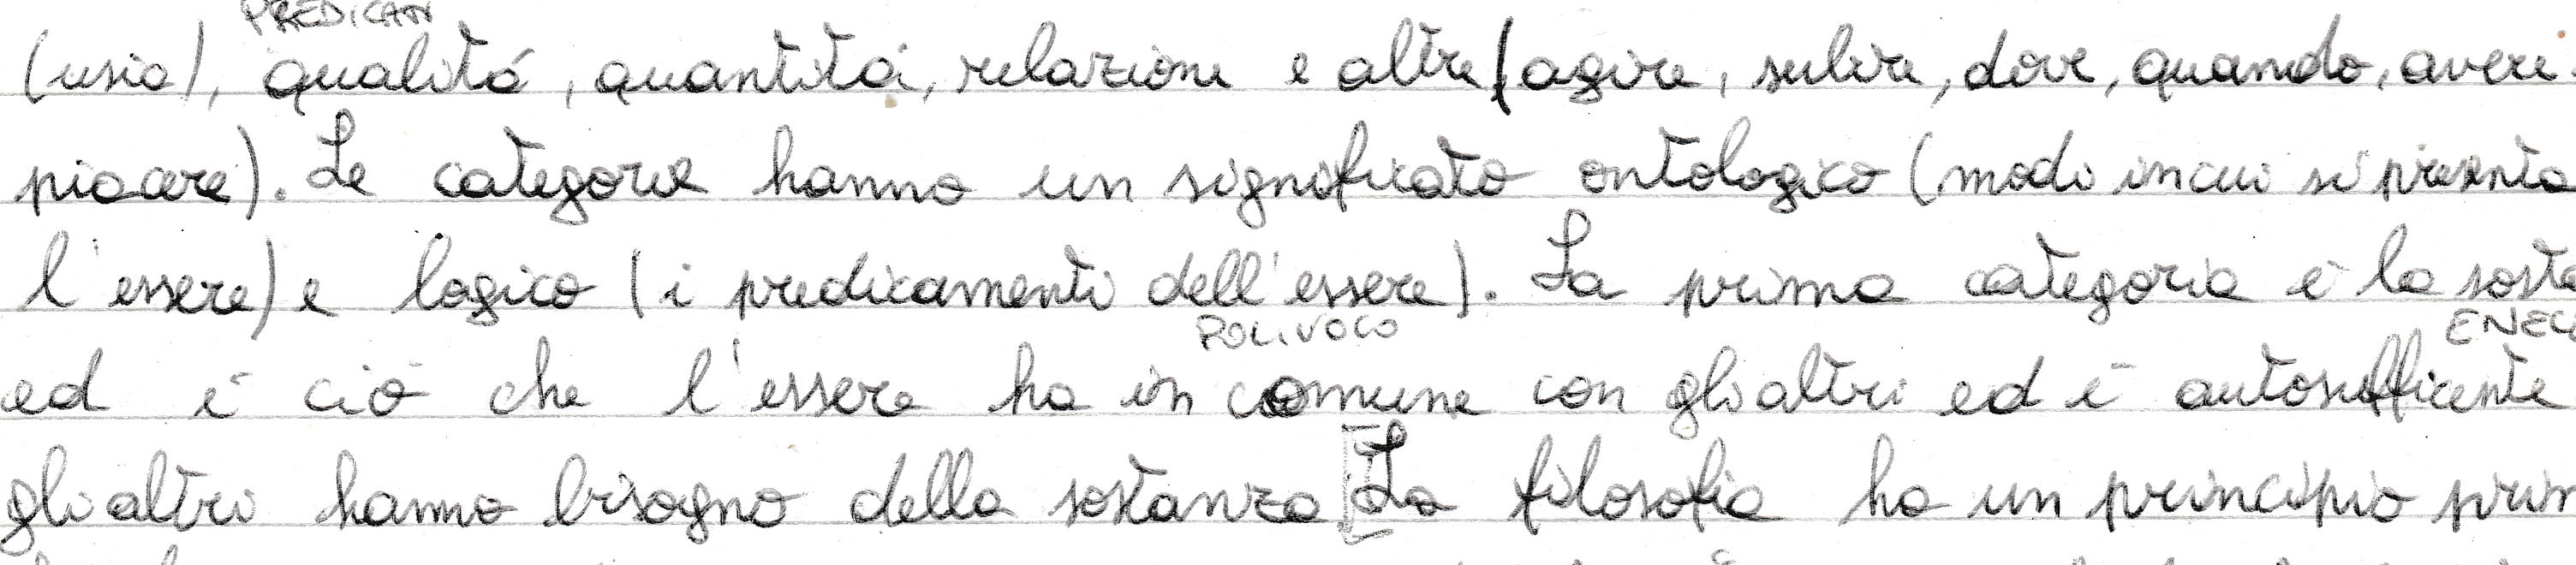 PREDICAN
(usia), qualitá, quantitá, relazione e altre (agire, subire, dove, quando, avere
piacere). Le categorie hanno un significato ontologico (modi in cui si presenta
l'essere) e logico (i predicamenti dell'essere). La prima categoria è la sosta
POLIVOCO ENEC
ed è ciò che l'essere ha in comune con gli altri ed è autosufficente
gli altri hanno bisogno della sostanza. [La filosofia ha un principio prim